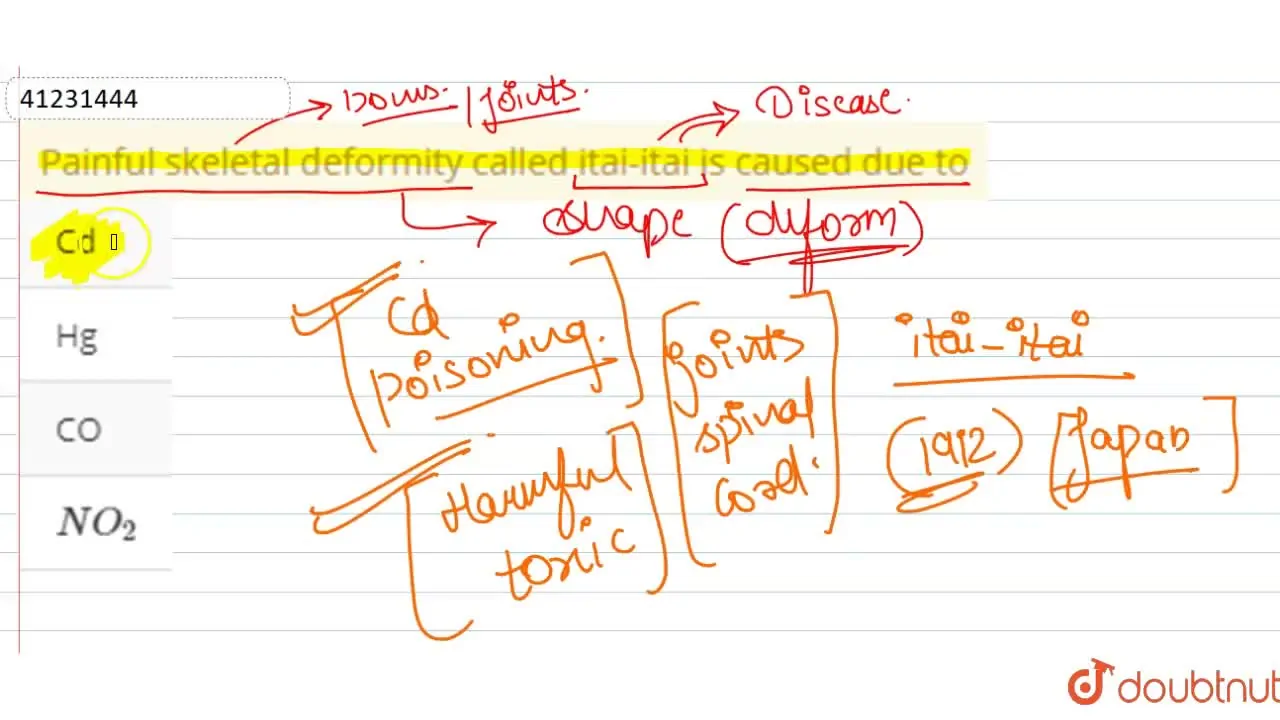 41231444
Joints. Disease.
Painful skeletal deformity called itai-itai is caused due to
shape (deform)
Cd
Cd poisoning.
Hg
Joints spinal cord.
itai-itai
CO
(1912) [Japan]
Harmful toxic
NO₂
doubtnut